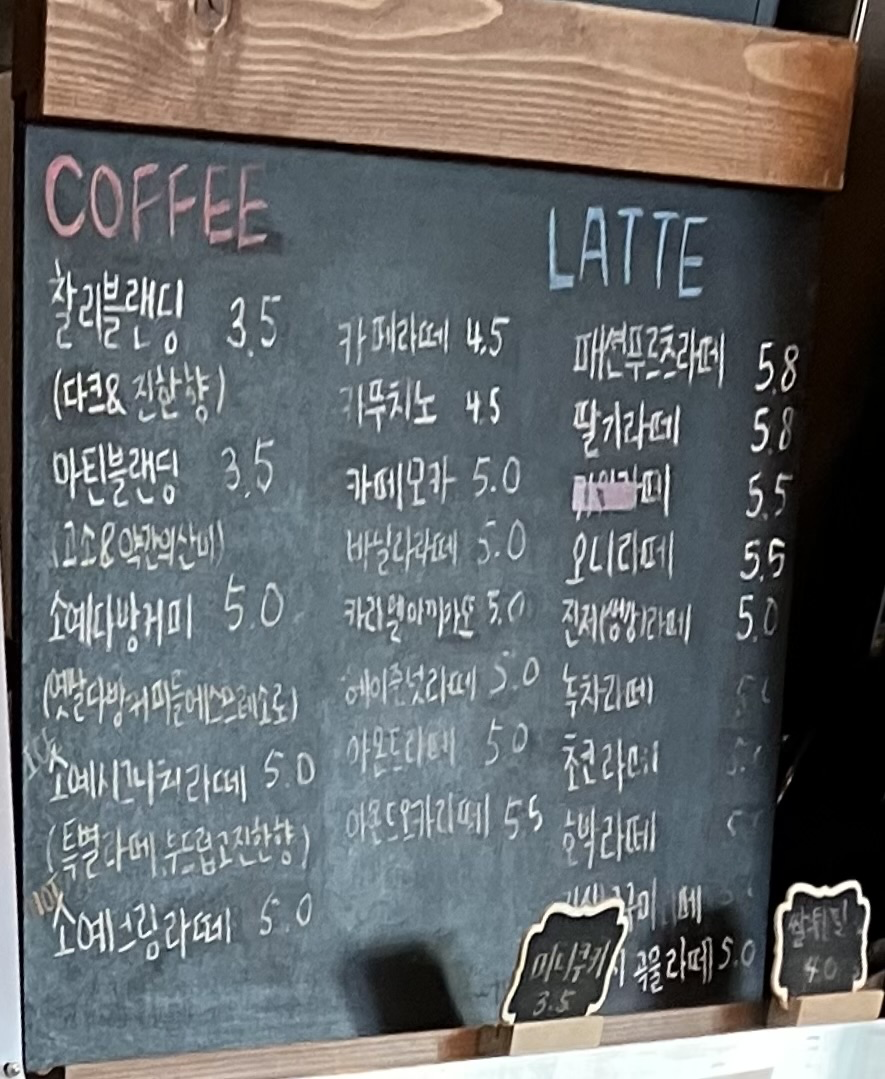 COFFEE
찰리블랜딩 3.5
(다크& 진한향)
마틴블랜딩 3.5
(고소&약간의산미)
소예다방커피 5.0
(옛날다방커피를에스프레소로)
소예시그니처라떼 5.0
(특별라떼,부드럽고진한향)
소예크림라떼 5.0
카페라떼 4.5
카푸치노 4.5
카페모카 5.0
바닐라라떼 5.0
카라멜마끼아또 5.0
헤이즐넛라떼 5.0
아몬드라떼 5.0
아몬드모카라떼 5.5
LATTE
패션푸르츠라떼 5.8
딸기라떼 5.8
5.5
오니라떼 5.5
진저(생강)라떼 5.0
녹차라떼
초코라떼
호박라떼
곡물라떼 5.0
미니쿠키
3.5
쌀튀밥
4.0